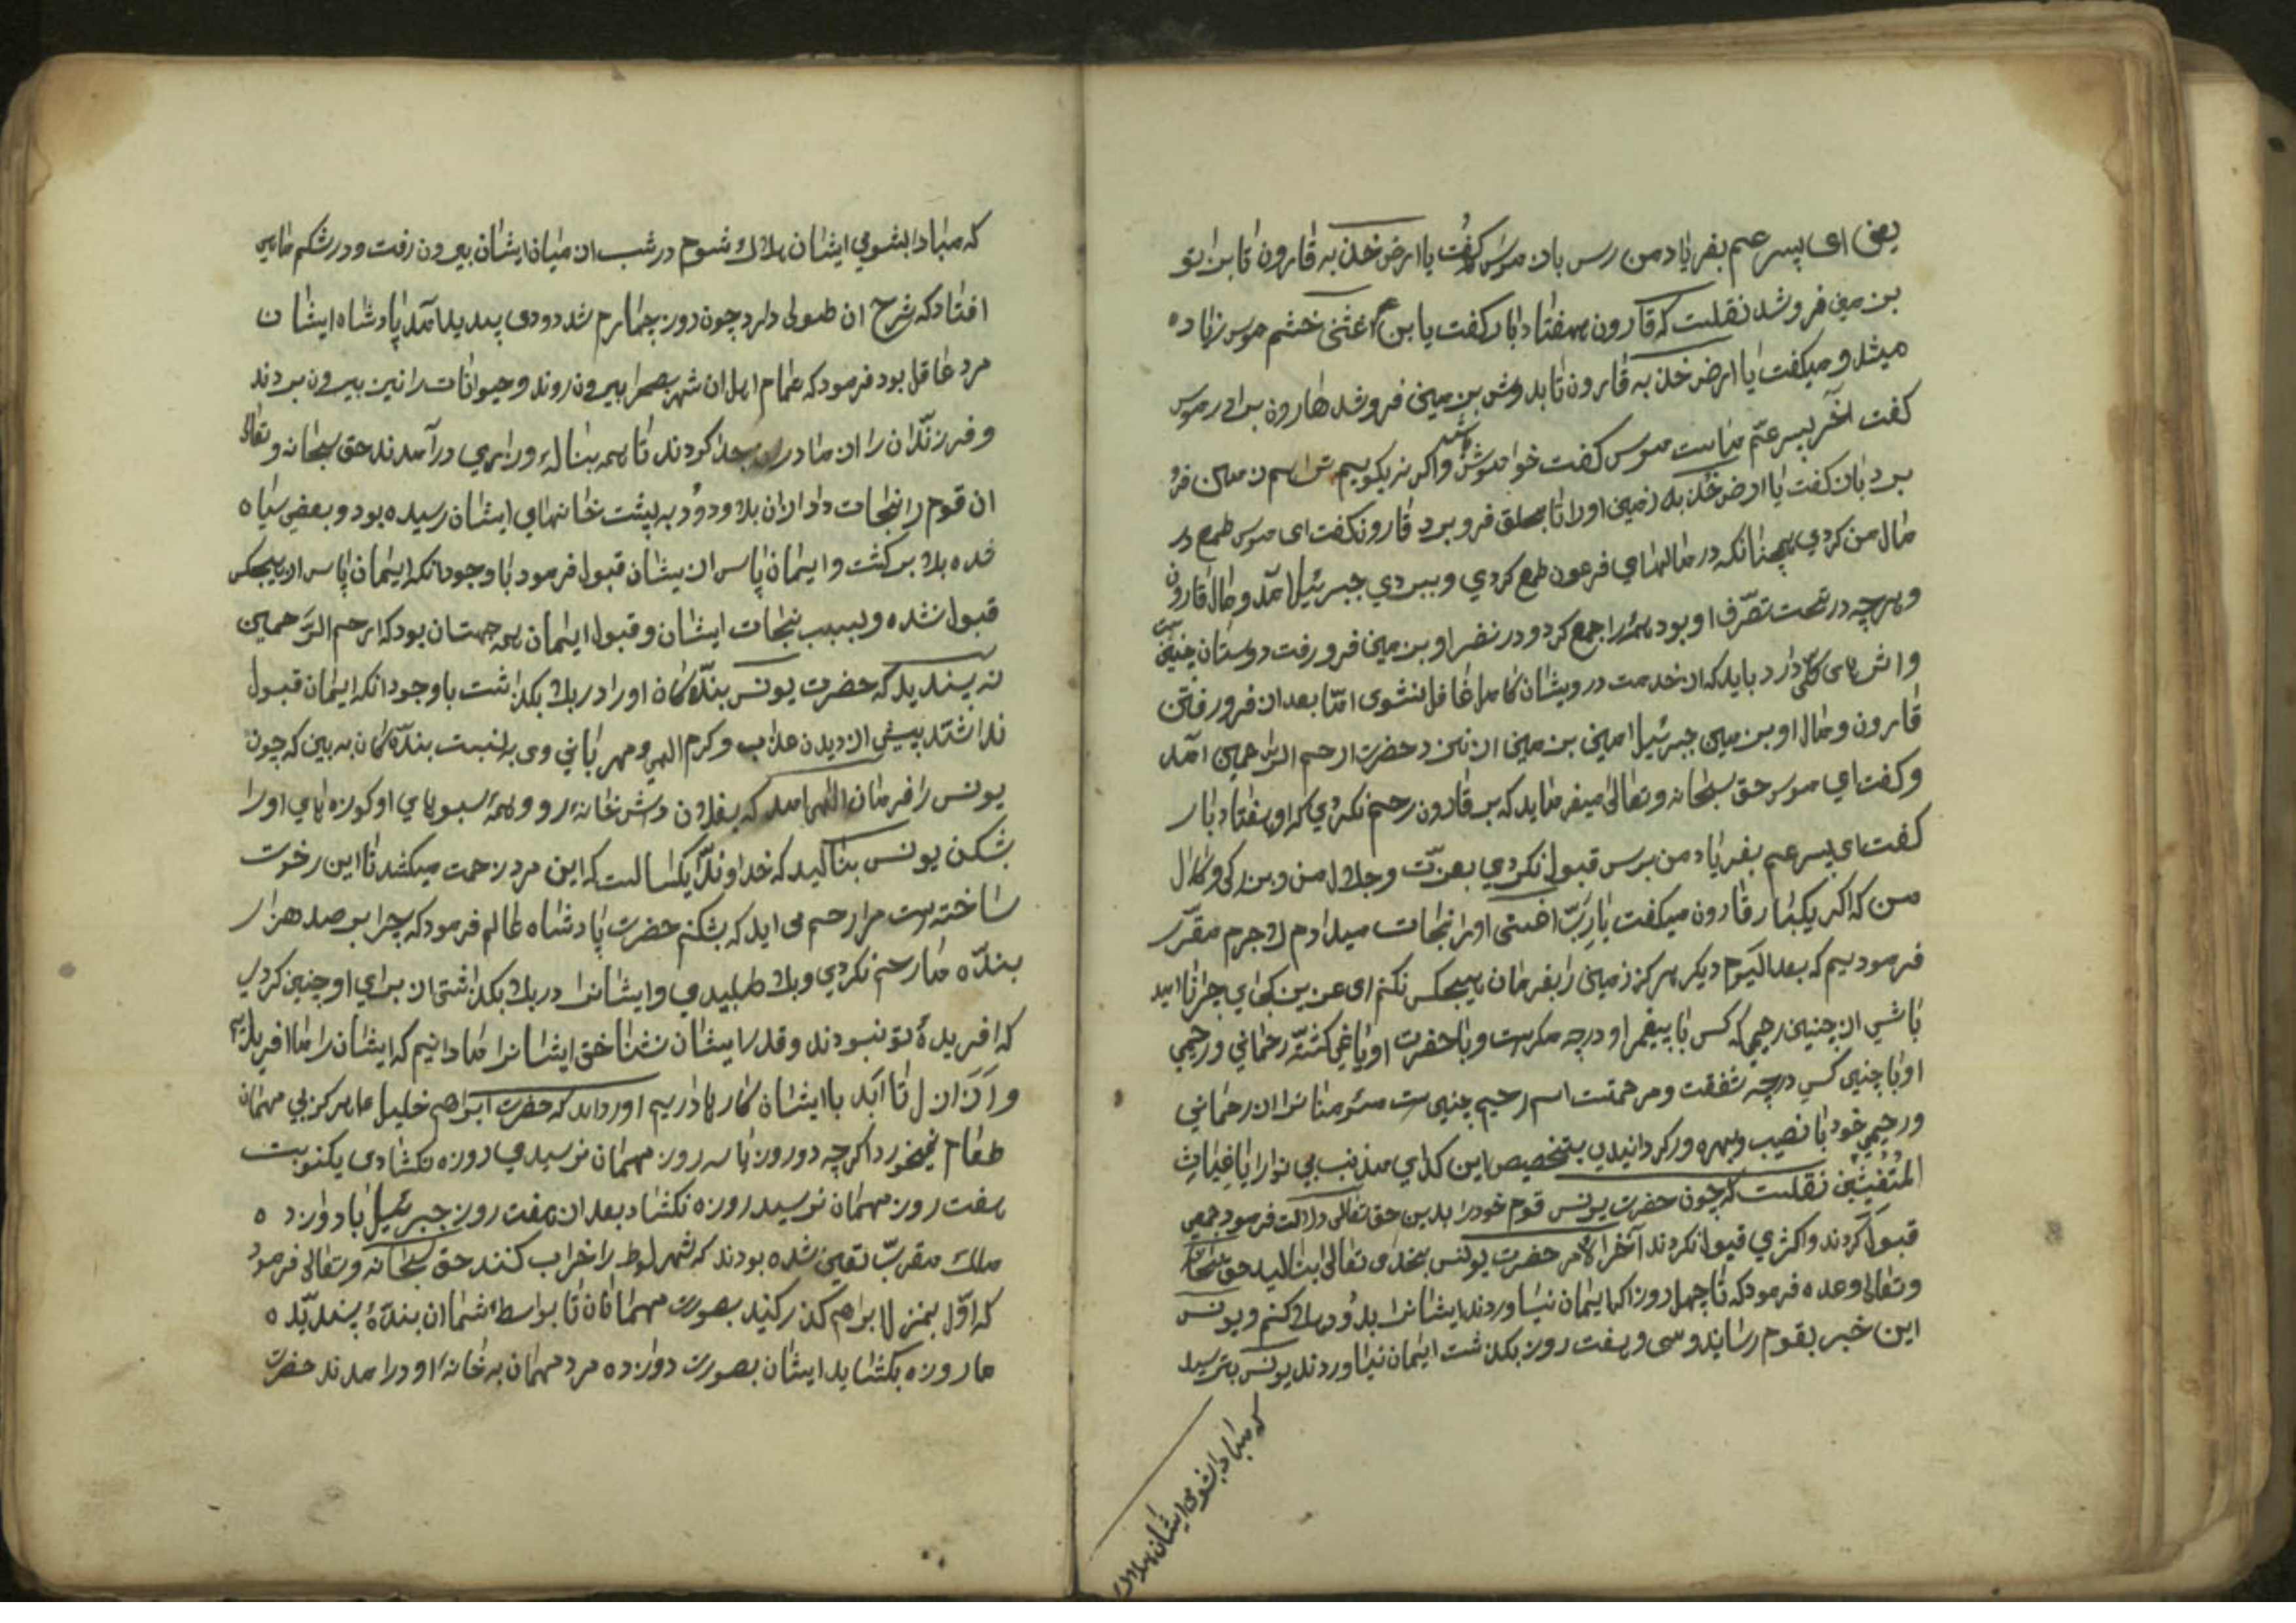 یعنی ای پسر عم بفریاد من رس باز موسی گفت یا ارض خذیه قارون تا بزانو
بزمین فرو شد نقلست که قارون هفتاد بار گفت یا بن عم اغثنی خشم موسی زیاده
میشد و میکفت یا ارض خذیه قارون تا بدوش بزمین فرو شد هارون برادر موسی
کفت آخر پسر عم ماست موسی کفت خواموش واکر نه بکویم ترا هم زمین فرو
برد باز کفت یا ارض خذیه زمین اورا تا بحلق فرو برد قارون کفت ای موسی طمع در
مال من کردی همچنانکه در مالهای فرعون طمع کردی و ببردی جبرئیل آمد و مال قارون
و هرچه در تحت تصرّف او بود همه را جمع کرد و در نظر او بزمین فرو رفت دوستان چنین
باید که از خدمت درویشان کامل غافل نشوی امّا بعد از فرو رفتن
قارون و مال او بزمین جبرئیل امین بزمین از نزد حضرت ارحم الراحمین آمد
و کفت ای موسی حق سبحانه و تعالی میفرماید که بر قارون رحم نکردی که او هفتاد بار
کفت ای پسر عم بفریاد من برس قبول نکردی بعزّت و جلال من و بزرکی و کمال
من که اکر یکبار قارون میکفت یا ربّ اغثنی اورا نجات میدادم لاجرم مقرّر
فرمودیم که بعد الیوم دیکر هرکز زمین را بفرمان هیچکس نکنم ای عزیز بکجای چرا نا امید
باشی از چنین رحیمی که کس با پیغمبر او درچه مکرست و با حضرت او یاغی کشته رحمانی و رحیمی
او با چنین کسی درچه شفقت و مرحمتست اسم رحیم چنین ست مؤمنانرا از رحمانی
و رحیمی خود با نصیب و بهره ور کردانیدی بتخصیص این کدای مذنب بی نوا را یا غیاث
المستغیثین نقلست که چون حضرت یونس قوم خودرا بدین حق تعالی دلالت فرمود جمعی
قبول کردند و اکثری قبول نکردند آخر الامر حضرت یونس بخدای تعالی بنالید حق سبحانه
و تعالی وعده فرمود که تا چهل روز اکر ایمان نیاوردند ایشانرا بدود هلاک کنم و یونس
این خبر بقوم رسانید و سی و هفت روز بکذشت ایمان نیاوردند یونس بترسید
که مبادا بشومی ایشان هلاک
که مبادا بشومی ایشان هلاک شوم در شب از میان ایشان بیرون رفت و در شکم ماهی
افتاد که شرح ان طولی دارد چون روز چهارم شد دودی پدید آمد پادشاه ایشان
مرد عاقل بود فرمود که تمام اهل ان شهر بصحرا بیرون روند و حیوانات را نیز بیرون بردند
و فرزندان را از مادران جدا کردند تا همه بناله و زاری درآمدند حق سبحانه و تعالی
ان قوم را نجات داد از ان بلا و دود به پشت خانهای ایشان رسیده بود و بعضی سیاه
شده بلا برکشت و ایمان یاس از یشان قبول فرمود با وجود انکه ایمان یاس از هیچکس
قبول نشده و بسبب نجات ایشان و قبول ایمان بچه جهت ان بود که ارحم الرّاحمین
نه پسندید که حضرت یونس بندکان اورا در بلا بکذاشت با وجود انکه ایمان قبول
نداشتند پیش از دیدن عذاب و کرم الهی و مهربانی وی به نسبت بندکان به بین که چون
یونس را فرمان الهی آمد که بفلان داش خانه رو و همه سبوهای او کوزه های اورا
بشکن یونس بنالید که خداوندا یکسالست که این مرد زحمت میکشد تا این رخوت
ساخته ست مرا رحم می اید که بشکنم حضرت پادشاه عالم فرمود که چرا بر صد هزار
بنده ما رحم نکردی و بلا طلبیدی و ایشانرا در بلا بکذاشتی از برای او چنین کردی
که افریدهٔ تو نبودند و قدر ایشان نشناختی ایشانرا ما دانیم که ایشان را ما افریده ایم
و از ازل تا ابد با ایشان کارها داریم اورده اند که حضرت ابراهیم خلیل هرکز بی مهمان
طعام نمیخورد اکرچه دو روز یا سه روز مهمان نرسیدی روزه نکشادی یکنوبت
هفت روز مهمان نرسید روزه نکشاد بعد از هفت روز جبرئیل با دوازده
ملک مقرّب تعین شده بودند که شهر لوط را خراب کنند حق سبحانه و تعالی فرمود
که اوّل بمنزل ابراهیم کذر کنید بصورت مهمانان تا بواسطهٔ شما ان بندهٔ پسندیده
ما روزه بکشاید ایشان بصورت دوازده مرد مهمان به خانهٔ او درامدند حضرت